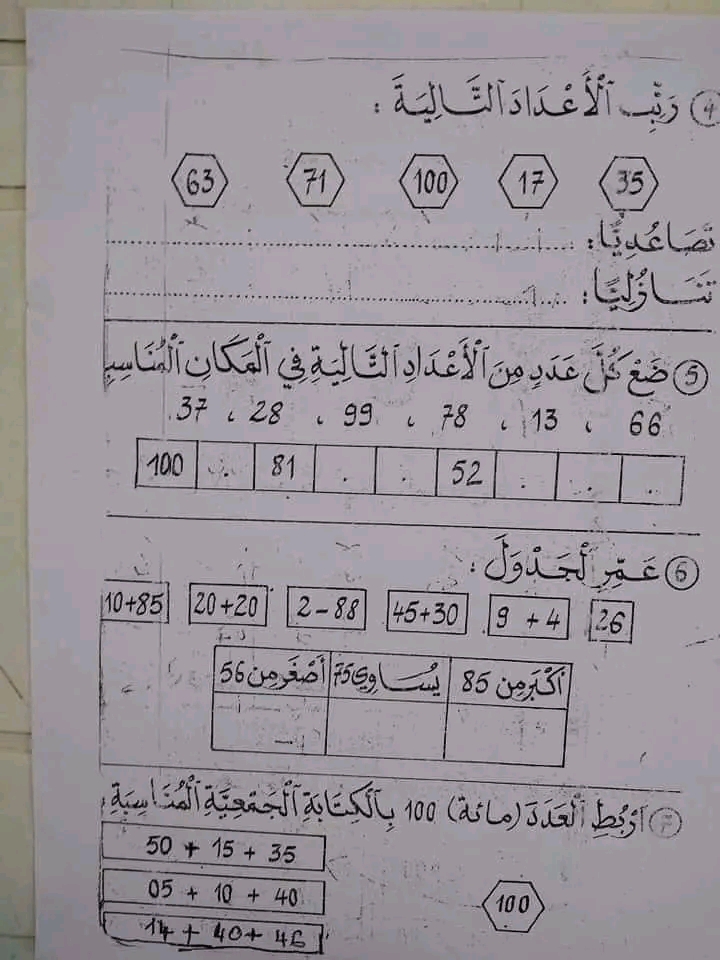 ④ رَتِّبِ ٱلْأَعْدَادَ ٱلتَّالِيَةَ :
35 17 100 71 63
تَصَاعُدِيًّا: ........................
تَنَازُلِيًّا: ........................
⑤ ضَعْ كُلَّ عَدَدٍ مِنَ ٱلْأَعْدَادِ ٱلتَّالِيَةِ فِي ٱلْمَكَانِ ٱلْمُنَاسِبِ
66 ، 13 ، 78 ، 99 ، 28 ، 37
. . . 52 . . 81 . 100
⑥ عَمِّرِ ٱلْجَدْوَلَ :
26 9 + 4 45+30 2-88 20+20 10+85
أَكْبَر مِن 85 يُسَاوِي 75 أَصْغَر مِن 56
⑦ اُرْبُطِ ٱلْعَدَدَ (مائة) 100 بِٱلْكِتَابَةِ ٱلْجَمْعِيَّةِ ٱلْمُنَاسِبَةِ
50 + 15 + 35
05 + 10 + 40
100
14 + 40 + 46